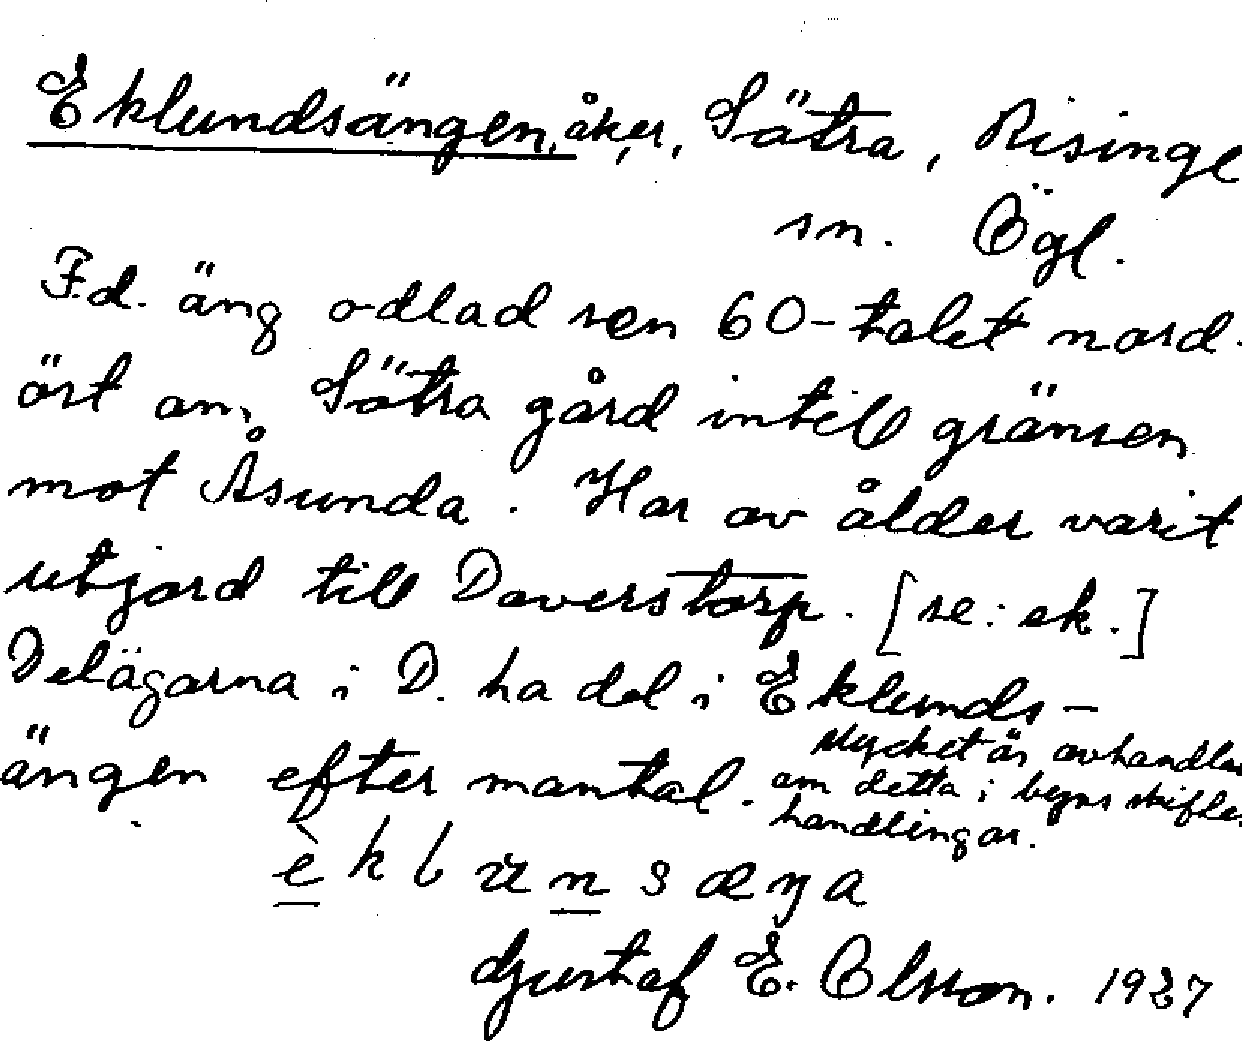 Eklundsängen, åker, Sätra, Risinge
sn. Ögl.
F.d. äng odlad sen 60-talet nord-
öst om Sätra gård intill gränsen
mot Åsunda. Har av ålder varit
utjord till Daverstorp. [se: ek.]
Delägarna i D. ha del i Eklunds-
ängen efter mantal. Mycket är avhandlat
om detta i byns skiftes
handlingar.
Gustaf E. Olsson. 1937